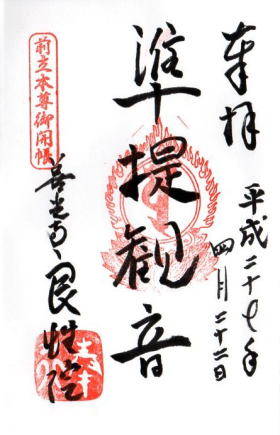 奉拝
平成二十七年
四月二十二日
準提観音
前立本尊御開帳
善光寺
良性院